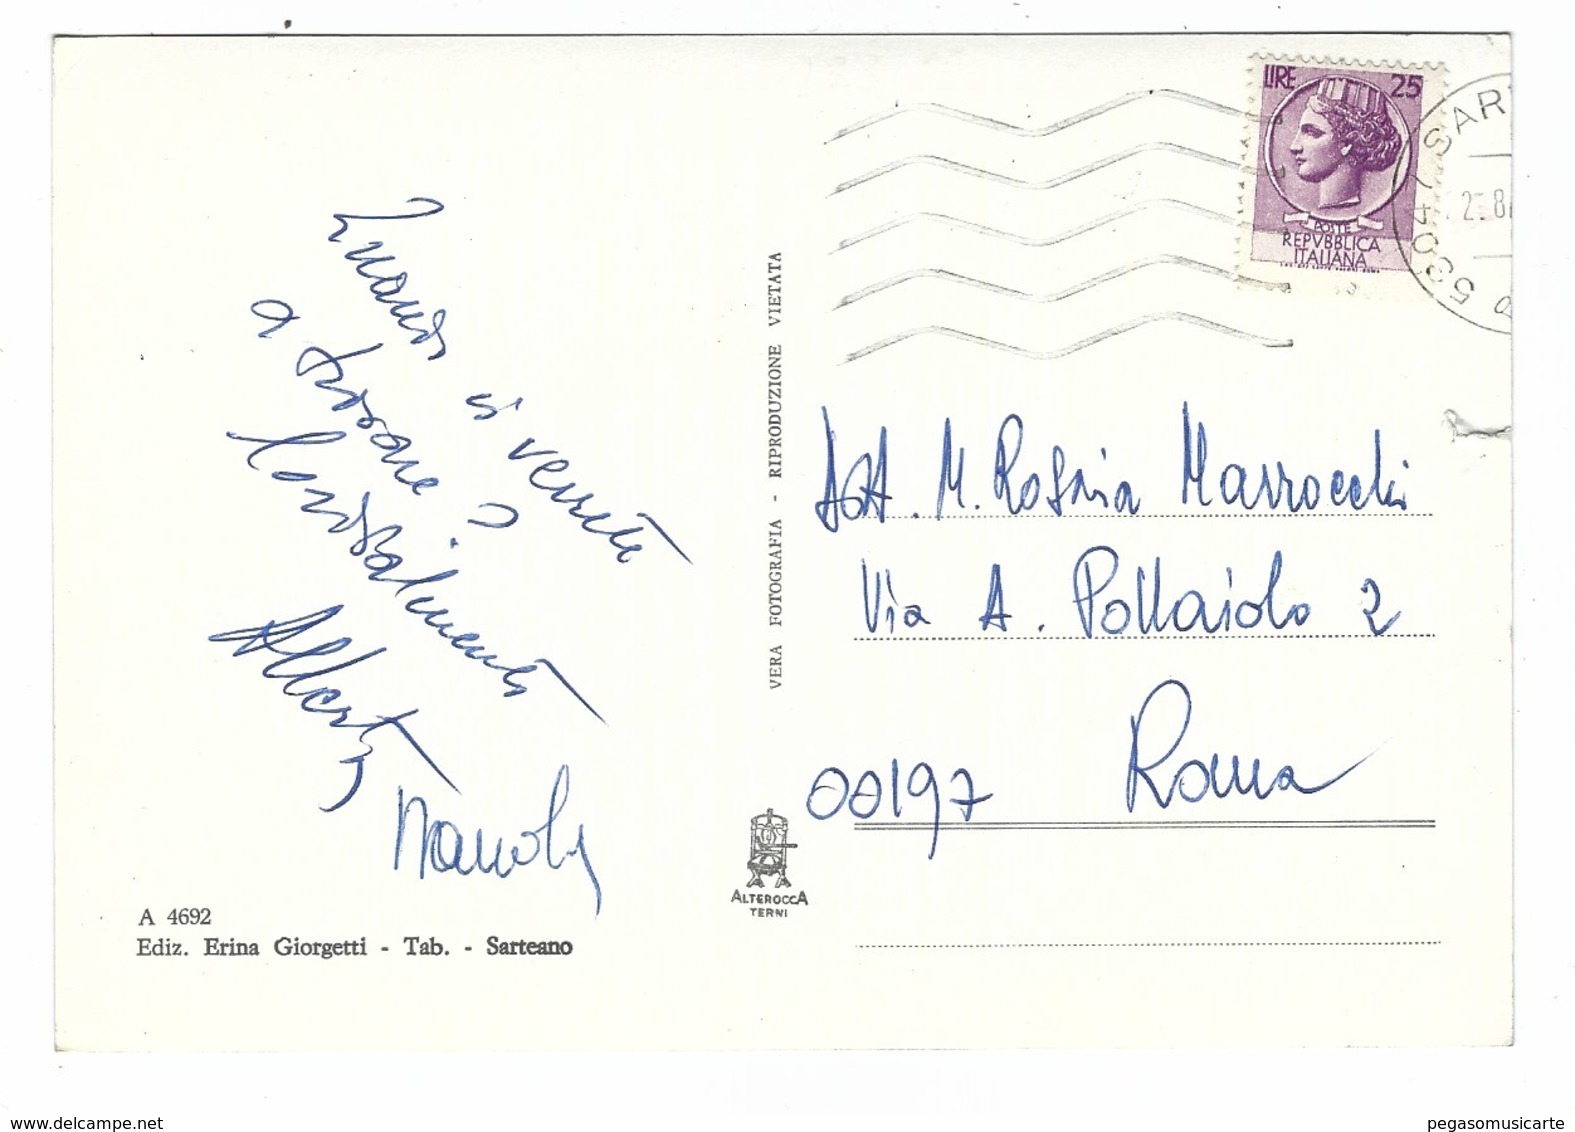 Quando si verrete
a trovare?
Cordialmente
Alberto
Manola
A 4692
Ediz. Erina Giorgetti - Tab. - Sarteano
VERA FOTOGRAFIA - RIPRODUZIONE VIETATA
ALTEROCCA
TERNI
LIRE 25
POSTE
REPVBBLICA
ITALIANA
53047 SART
2.8
Dott. M. Rosaria Marrocchi
Via A. Pollaiolo 2
00197 Roma
www.delcampe.net
pegasomusicarte